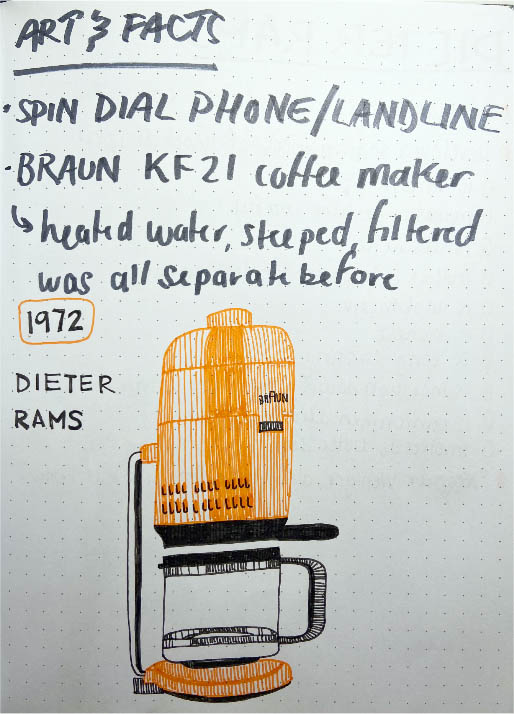 ART & FACTS
· SPIN DIAL PHONE/LANDLINE
· BRAUN KF21 coffee maker
↳ heated water, steeped, filtered
was all separate before
1972
DIETER
RAMS
BRAUN